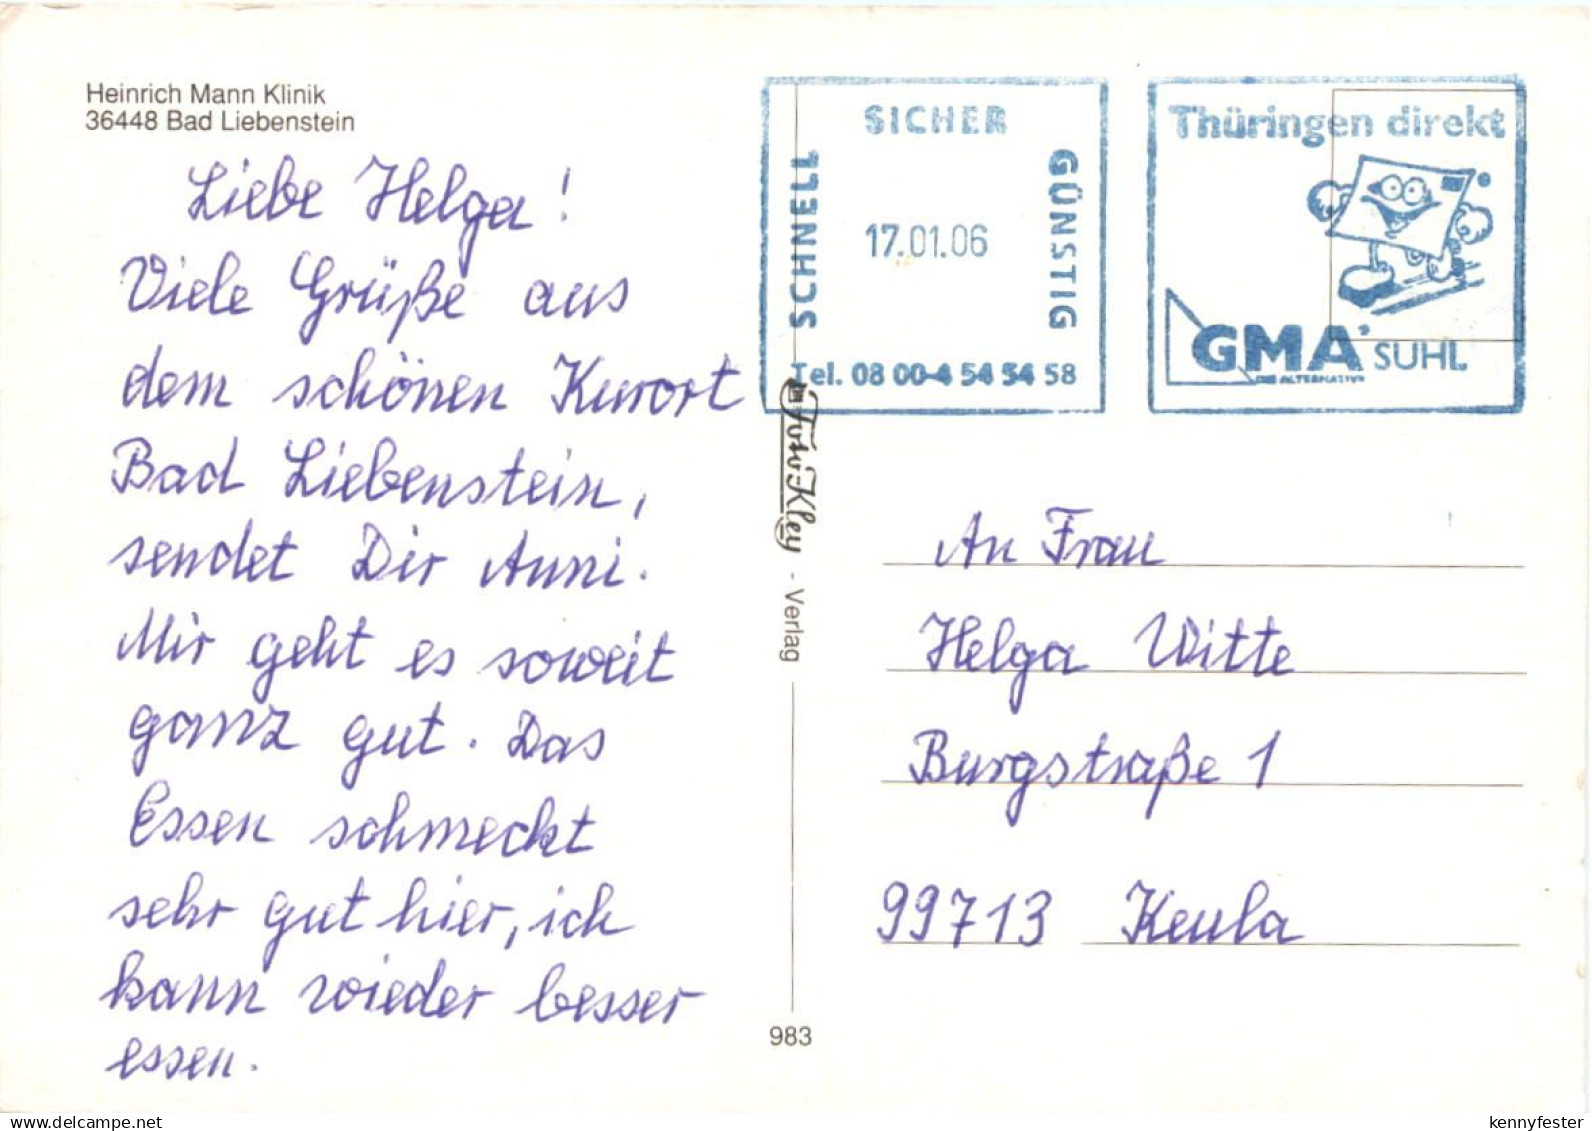 Heinrich Mann Klinik
36448 Bad Liebenstein
Liebe Helga!
Viele Grüße aus
dem schönen Kurort
Bad Liebenstein,
sendet Dir Anni.
Mir geht es soweit
ganz gut. Das
Essen schmeckt
sehr gut hier, ich
kann wieder besser
essen.
SICHER
SCHNELL
GÜNSTIG
17.01.06
Tel. 08 00-4 54 54 58
Thüringen direkt
GMA SUHL
DIE ALTERNATIVE
Foto Kley - Verlag
983
An Frau
Helga Witte
Burgstraße 1
99713 Keula
www.delcampe.net
kennyfester